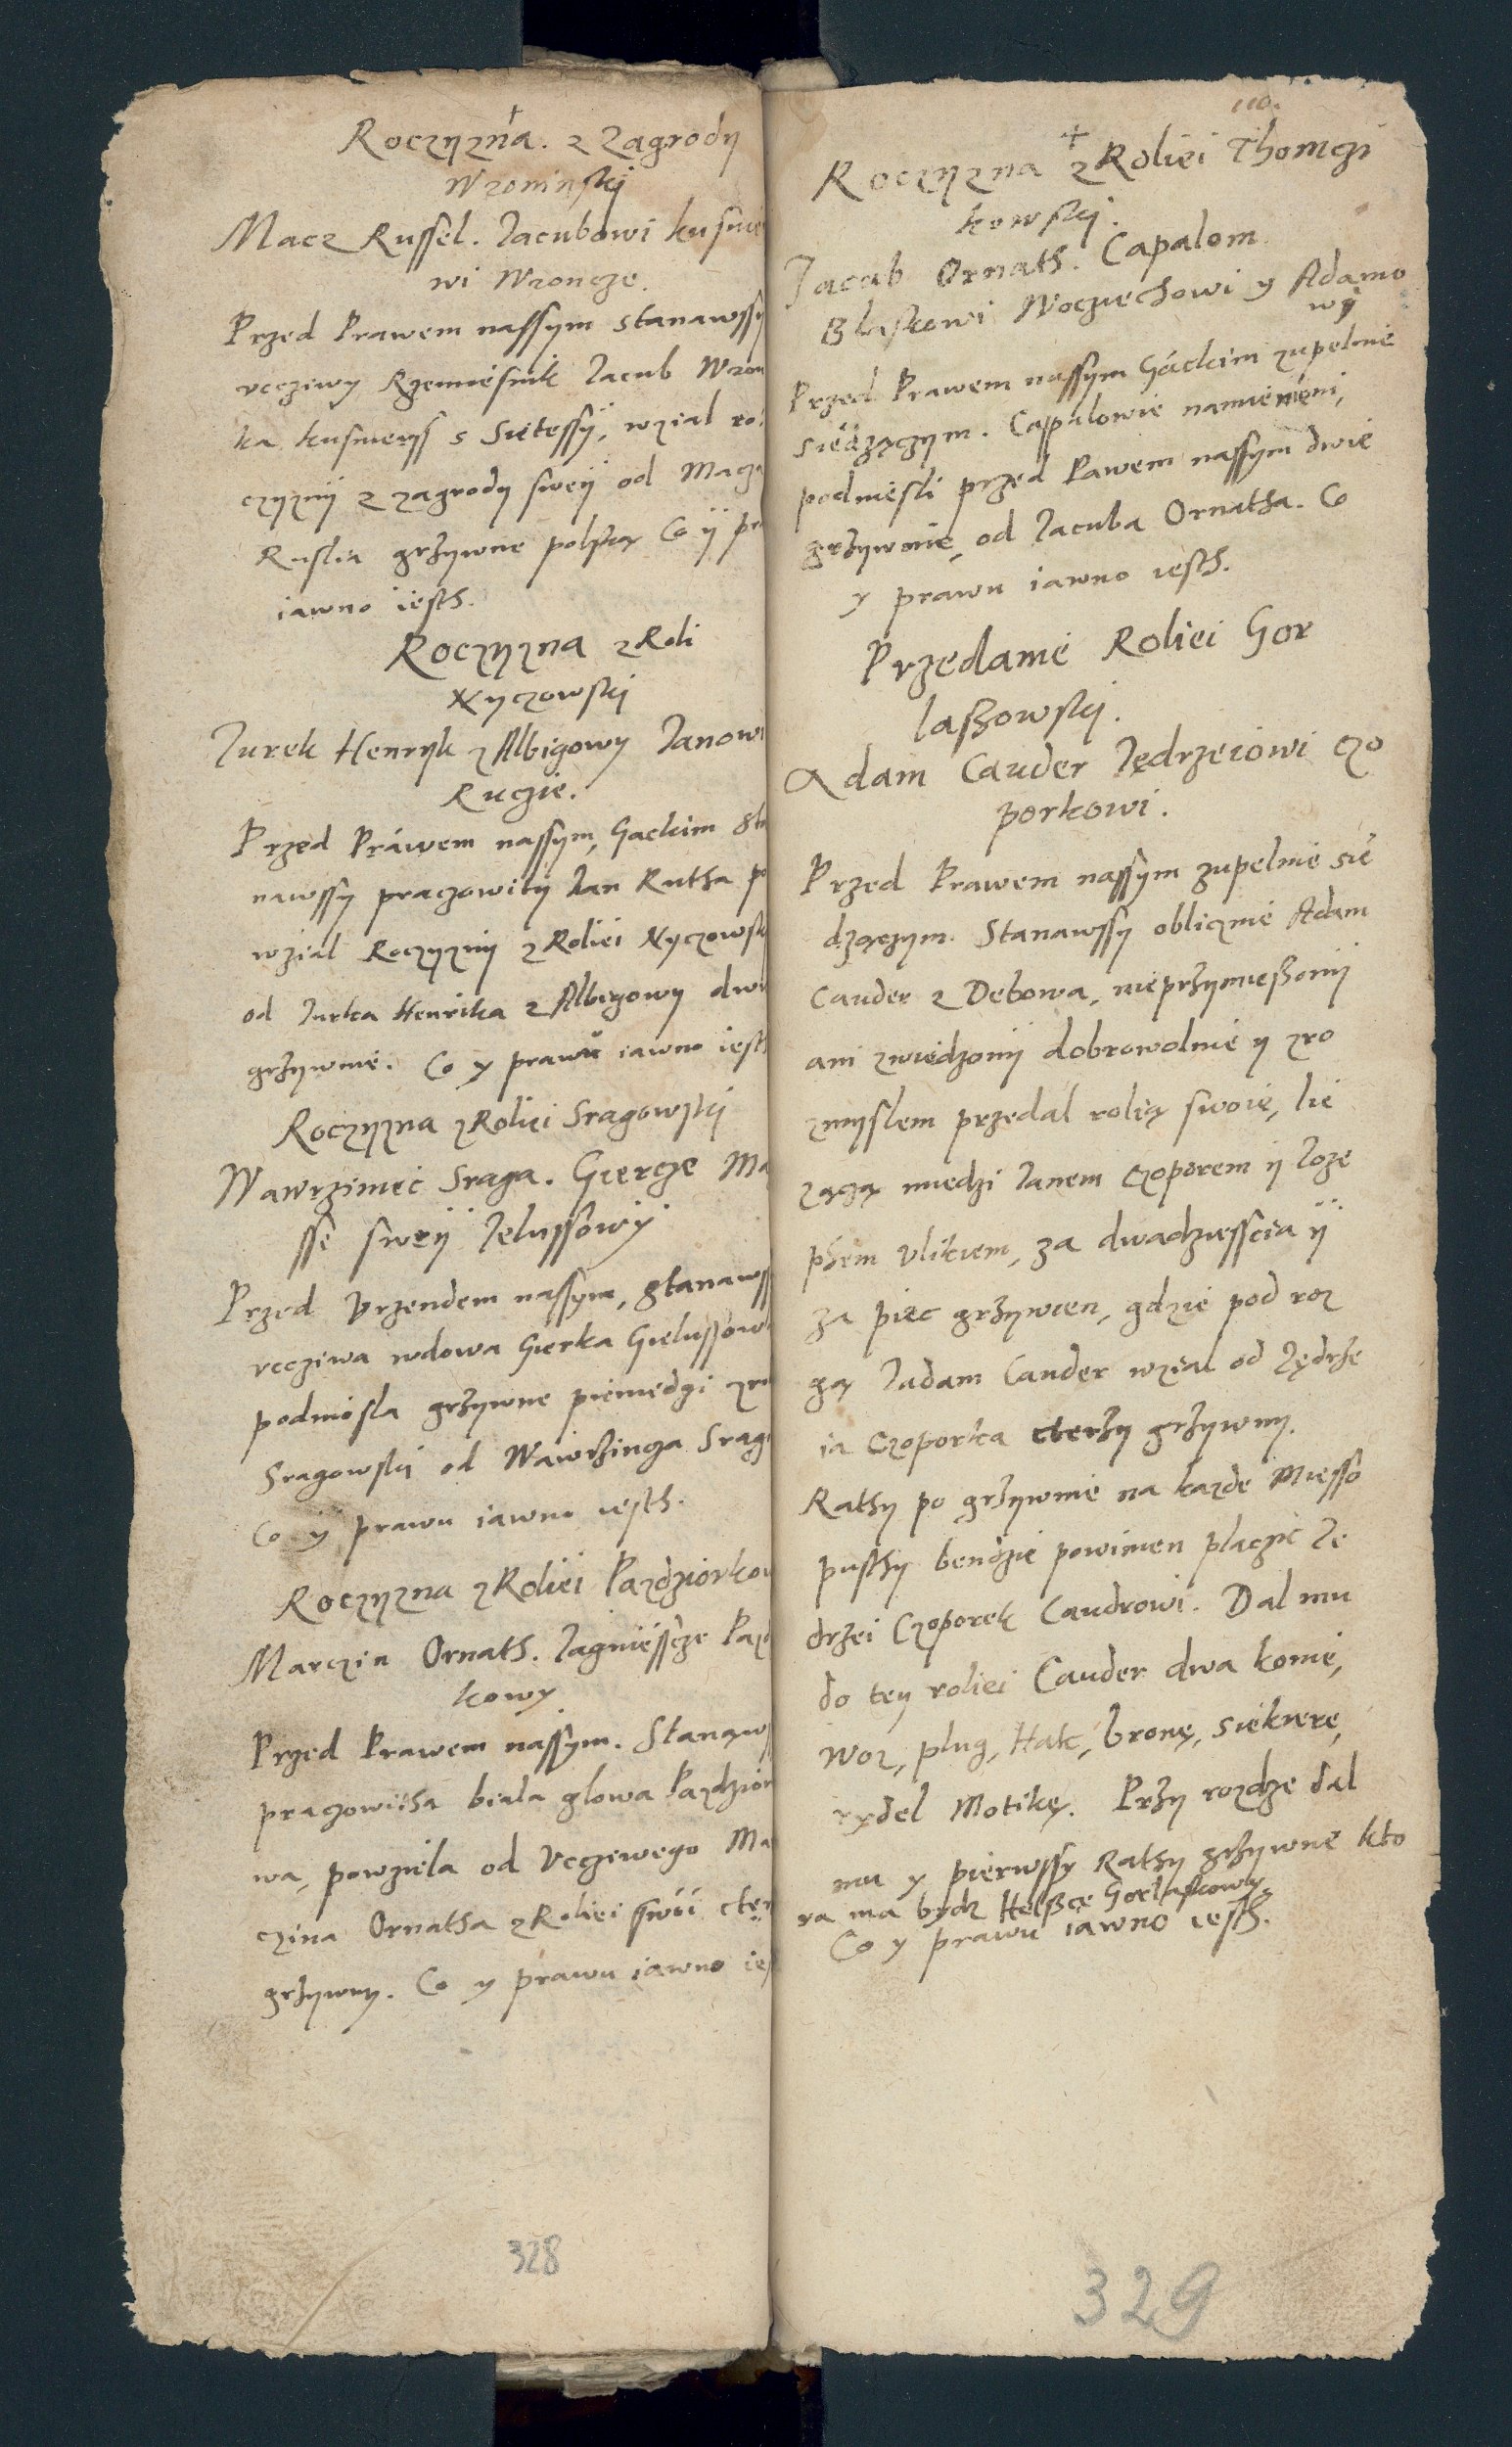 Roczyzna. z Zagrody
Wroninskij
Macz Russel. Jacubowi kusnie
wi Wroncze.
Przed Prawem nassym stanawssy
vccziwy Rzemiesnik Jacub Wron
ka kusniersz s Sietessÿ, wzial ro
czyznÿ z zagrody sweÿ od Macza
Rusla grzywne polską Co ÿ pra
iawno iesth.
Roczyzna z Roli
Nyczowskij
Jurek Henryk z Albigowy Janowi
Ruczie.
Przed Práwem nassym, Gackim sta
nawssy praczowity Jan Rutha po
wzial Roczyznÿ z Roliei Nyczowsk
od Jurka Henrika z Albigowy dwie
grzywnie. Co y prawu iawno iesth
Roczyzna z Roliei Sragowskij
Wawrziniec Sraga. Giercze Ma
sse sweÿ Jelussowÿ
Przed Vrzendem nassym, stanawssy
vccziwa wdowa Gierka Gielussow
podniosla grzywne pieniedzi z ro
Sragowski od Wawrzinza Srag
Co ÿ prawu iawno iesth.
Roczyzna z Roliei Pazdziorkow
Marczin Ornath. Jagniessce Pazd
kowy
Przed Prawem nássym. Stanąws
praczowitha biala glowa Pazdzior
wa, powziela od Vcczewego Ma
czina Ornatha z Roliei swéi cter
grzywny. Co y prawu iawno ies
328
110.
Roczyzna z Roliei Thomczi
kowskij.
Jacub Ornath. Capalom
Blaskowi Woczuechowi y Adamo
wÿ
Przed Prawem nassym Gáckim zupelnie
siedzączym. Cappalowie namienieni,
podniesli przed Pawem nassym dwie
grzywnie, od Jacuba Ornatha. Co
y prawu iawno iesth.
Przedanie Roliei Gor
laszowskij.
Adam Cauder Jędrzeiowi czo
porkowi.
Przed Prawem nassym zupelnie sie
dzączym. Stanawssy oblicznie Adam
Cauder z Debowa, nieprzymuszonÿ
ani zwiedzonÿ dobrowolnie y z ro
zmyslem przedal rolią swoię, lie
zączą miedzi Janem Czoporem ÿ Joze
phem Vlikiem, za dwadziesscia ÿ
za piec grzywien, gdzie pod roz
gą Jadam Cauder wzial od Jędrze
ia Czoporka cterzy grzywny.
Rathy po grzywnie na kazde Miesso
pusthy bendzie powinien placzic Je
drzei Czoporek Caudrowi. Dal mu
do tey roliei Cauder dwa konie,
woz, plug, Hak, bronę, siekierę,
rydel Motikę. Przy rozdze dal
mu y pierwssy Rathy grzywne kto
ra ma bydz Helszce Gorlaskowy
Co y prawu iawno iesth.
329